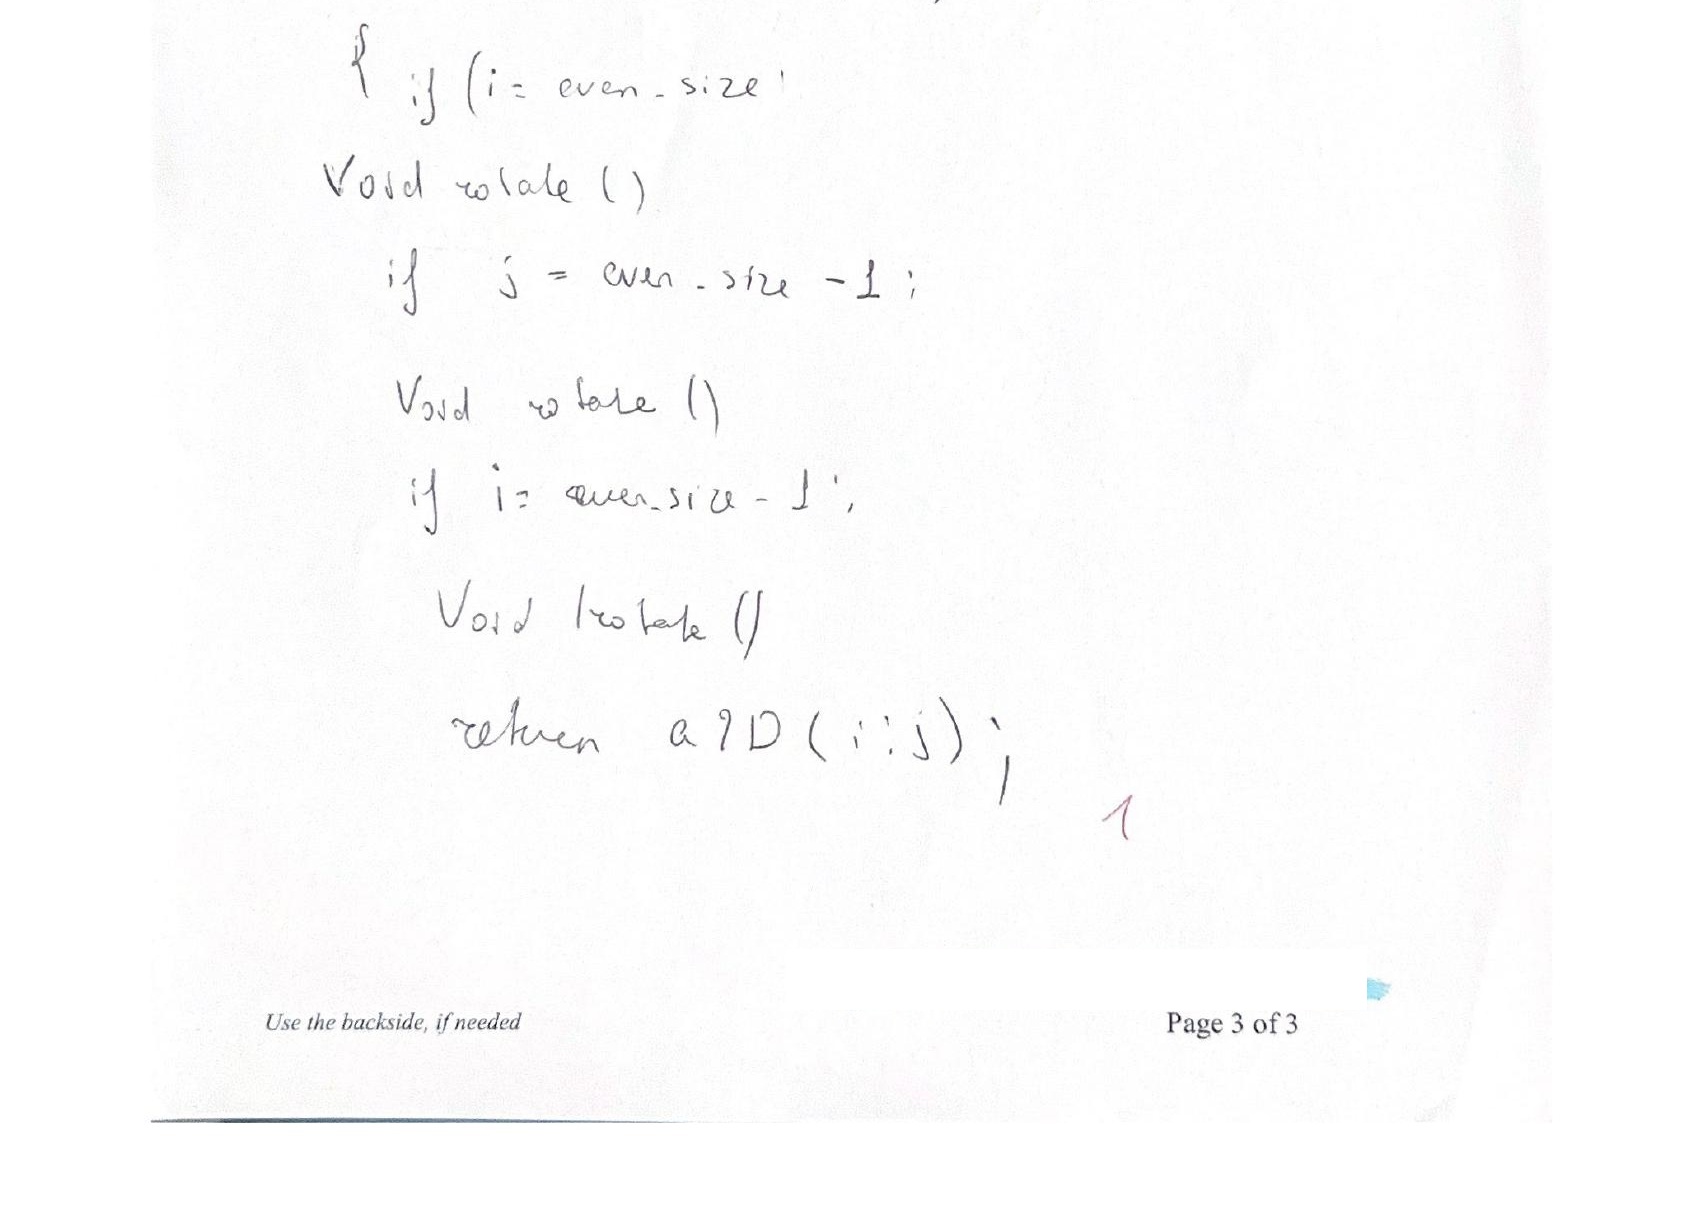 { if (i = even_size'
Void rotate ()
if j = even_size -1;
Void rotate ()
if i = even_size - 1;
Void rotate ()
return a2D (i:j);
1
Use the backside, if needed
Page 3 of 3